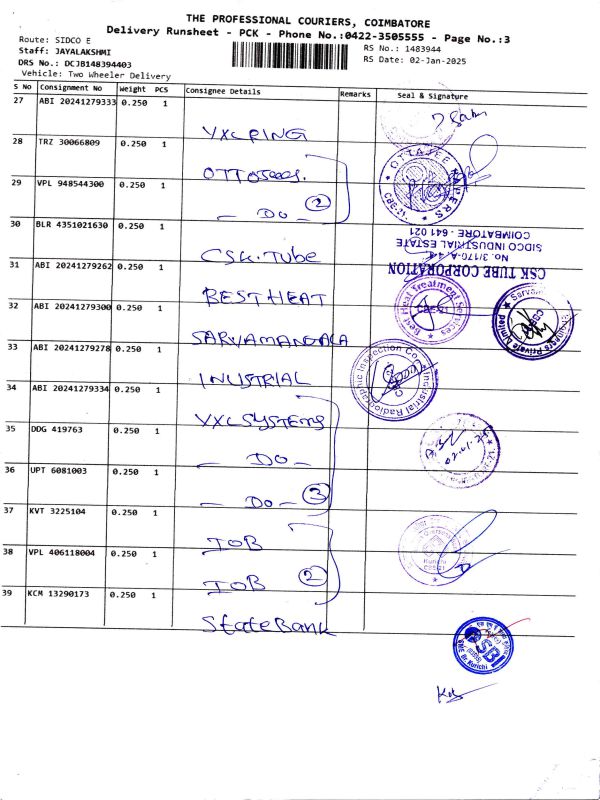 THE PROFESSIONAL COURIERS, COIMBATORE
Delivery Runsheet - PCK - Phone No.:0422-3505555 - Page No.:3
Route: SIDCO E
RS No.: 1483944
Staff: JAYALAKSHMI
RS Date: 02-Jan-2025
DRS No.: DCJB148394403
Vehicle: Two Wheeler Delivery
S No Consignment No Weight PCS Consignee Details Remarks Seal & Signature
27 ABI 20241279333 0.250 1 VXL RING
28 TRZ 30066809 0.250 1 OTTOSEEES.
29 VPL 948544300 0.250 1 - DO - 2
30 BLR 4351021630 0.250 1 CSK. TUBE
31 ABI 20241279262 0.250 1 BEST HEAT
32 ABI 20241279300 0.250 1 SARVAMANGALA
33 ABI 20241279278 0.250 1 INUSTRIAL
34 ABI 20241279334 0.250 1 VXL SYSTEMS
35 DDG 419763 0.250 1 - DO -
36 UPT 6081003 0.250 1 - DO - 3
37 KVT 3225104 0.250 1 IOB
38 VPL 406118004 0.250 1 IOB 2
39 KCM 13290173 0.250 1 State Bank
CSK TUBE CORPORATION
No. 3/170-A
SIDCO INDUSTRIAL ESTATE
COIMBATORE - 641 021
Best Heat Treatment Services
Industrial Radiographic Inspection
Private Limited
Kurichi
SBI
Kurichi